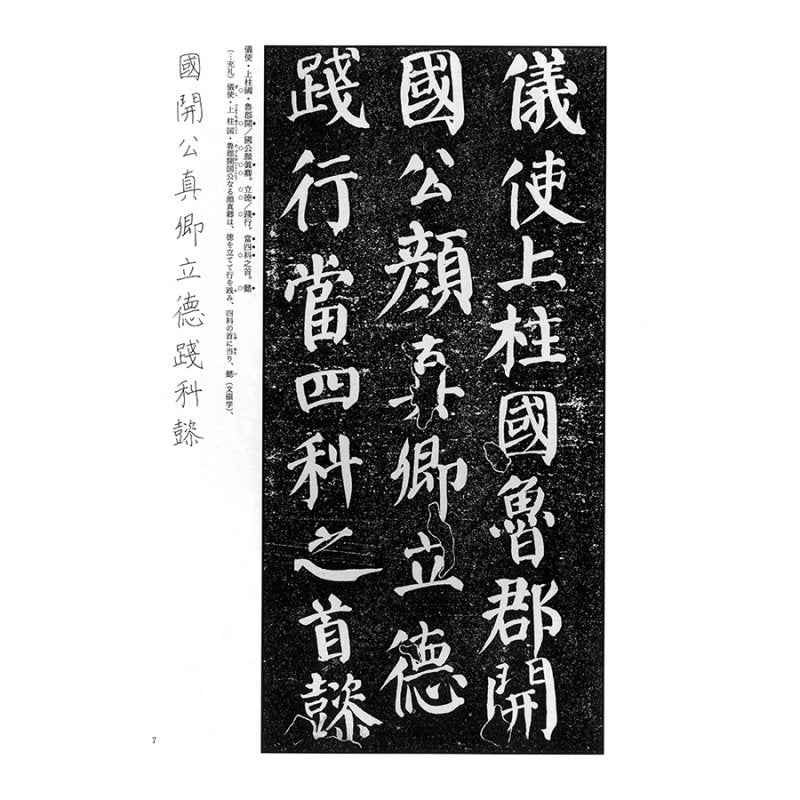 儀使上柱國魯郡開
國公顔真卿立德
踐行當四科之首懿
儀使・上柱國・魯郡開／國公顔眞卿。立德／踐行。當四科之首。懿
(…充礼)儀使・上柱国・魯郡開国公なる顔真卿は、徳を立てて行を践み、四科の首に当り、懿(文碩学)、
國開公真卿立德踐科懿
7